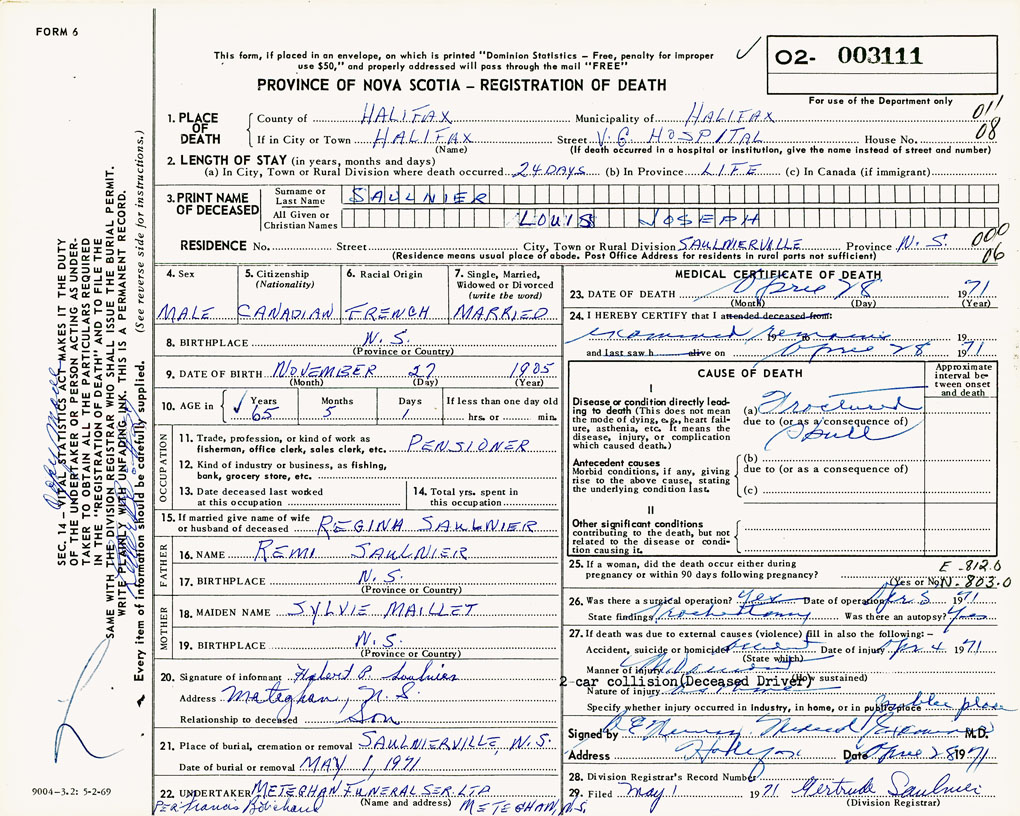 FORM 6
This form, if placed in an envelope, on which is printed "Dominion Statistics – Free, penalty for improper
use $50," and properly addressed will pass through the mail "FREE"
✓
02- 003111
PROVINCE OF NOVA SCOTIA – REGISTRATION OF DEATH
For use of the Department only
1. PLACE OF DEATH
County of HALIFAX Municipality of HALIFAX 011
If in City or Town HALIFAX Street V.G. HOSPITAL House No. 08
(Name) (If death occurred in a hospital or institution, give the name instead of street and number)
2. LENGTH OF STAY (in years, months and days)
(a) In City, Town or Rural Division where death occurred 24 DAYS (b) In Province LIFE (c) In Canada (if immigrant)
3. PRINT NAME OF DECEASED
Surname or Last Name SAULNIER
All Given or Christian Names LOUIS JOSEPH
000
RESIDENCE No. Street City, Town or Rural Division SAULNIERVILLE Province N.S.
(Residence means usual place of abode. Post Office Address for residents in rural parts not sufficient) 06
4. Sex MALE
5. Citizenship (Nationality) CANADIAN
6. Racial Origin FRENCH
7. Single, Married, Widowed or Divorced (write the word) MARRIED
8. BIRTHPLACE N.S.
(Province or Country)
9. DATE OF BIRTH NOVEMBER 27 1905
(Month) (Day) (Year)
10. AGE in ✓ Years 65 Months 5 Days 1 If less than one day old
hrs. or min.
OCCUPATION
11. Trade, profession, or kind of work as
fisherman, office clerk, sales clerk, etc. PENSIONER
12. Kind of industry or business, as fishing,
bank, grocery store, etc.
13. Date deceased last worked
at this occupation
14. Total yrs. spent in
this occupation
15. If married give name of wife
or husband of deceased REGINA SAULNIER
FATHER
16. NAME REMI SAULNIER
17. BIRTHPLACE N.S.
(Province or Country)
MOTHER
18. MAIDEN NAME SYLVIE MAILLET
19. BIRTHPLACE N.S.
(Province or Country)
20. Signature of informant Hubert P. Saulnier
Address Meteghan, N.S
Relationship to deceased Son
21. Place of burial, cremation or removal SAULNIERVILLE, N.S.
Date of burial or removal MAY 1, 1971
22. UNDERTAKER METEGHAN FUNERAL SER. LTD
(Name and address) METEGHAN, N.S.
Per Francis
MEDICAL CERTIFICATE OF DEATH
23. DATE OF DEATH April 28 1971
(Month) (Day) (Year)
24. I HEREBY CERTIFY that I attended deceased from:
examined remains 19 to 19
and last saw h alive on April 28 1971
CAUSE OF DEATH
Approximate interval between onset and death
I
Disease or condition directly leading
to death (This does not mean
the mode of dying, e.g., heart failure,
asthenia, etc. It means the
disease, injury, or complication
which caused death.)
(a) Fractured
due to (or as a consequence of)
Skull
Antecedent causes
Morbid conditions, if any, giving
rise to the above cause, stating
the underlying condition last.
(b)
due to (or as a consequence of)
(c)
II
Other significant conditions
contributing to the death, but not
related to the disease or condition
causing it.
25. If a woman, did the death occur either during
pregnancy or within 90 days following pregnancy?
(Yes or No)
E-812.0
N-803.0
26. Was there a surgical operation? yes Date of operation Apr. 5 1971
State findings Tracheotomy Was there an autopsy? yes
27. If death was due to external causes (violence) fill in also the following:–
Accident, suicide or homicide accident Date of injury Apr. 4 1971
(State which)
Manner of injury (How sustained)
2-car collision (Deceased Driver)
Nature of injury
Specify whether injury occurred in industry, in home, or in public place public place
Signed by Medical Examiner M.D.
Address Halifax Date April 28 1971
28. Division Registrar's Record Number
29. Filed May 1 1971 Gertrude Saulnier
(Division Registrar)
SEC. 14 – VITAL STATISTICS ACT MAKES IT THE DUTY
OF THE UNDERTAKER OR PERSON ACTING AS UNDERTAKER
TO OBTAIN ALL THE PARTICULARS REQUIRED
IN THE "REGISTRATION OF DEATH" AND TO FILE THE
SAME WITH THE DIVISION REGISTRAR WHO SHALL ISSUE THE BURIAL PERMIT.
WRITE PLAINLY WITH UNFADING INK. THIS IS A PERMANENT RECORD.
Every item of information should be carefully supplied. (See reverse side for instructions.)
9004-3.2: 5-2-69